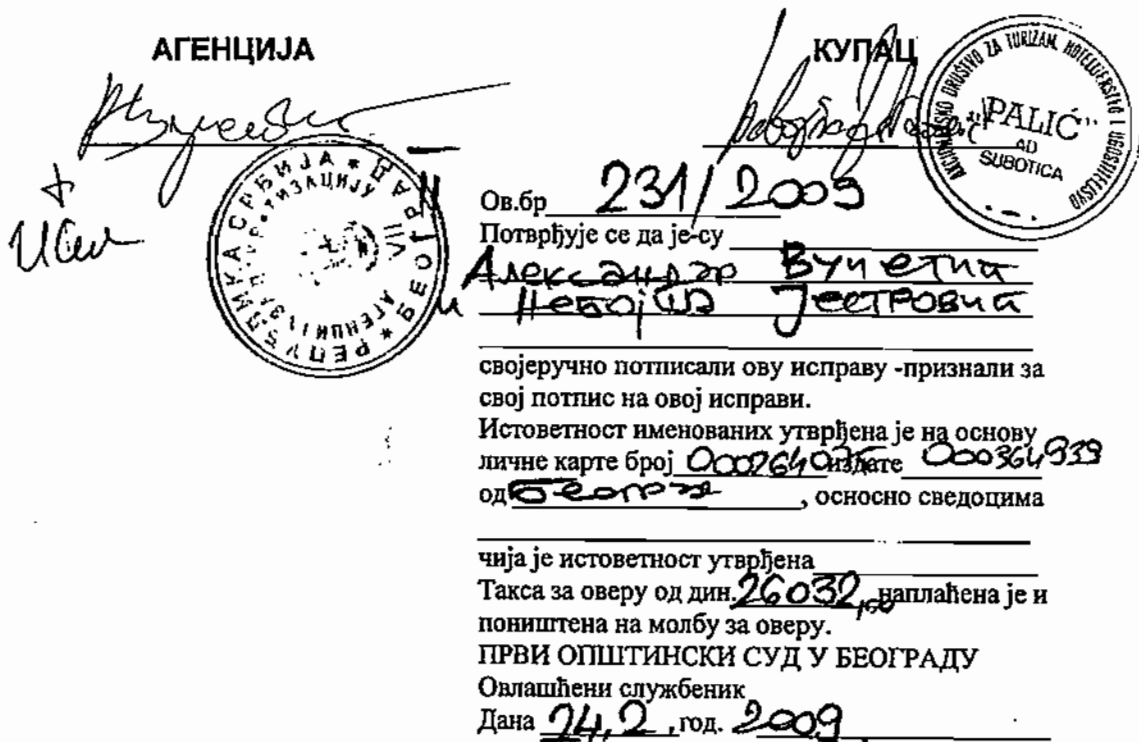 АГЕНЦИЈА
КУПАЦ
АКCIONARSKO DRUŠTVO ZA TURIZAM, HOTELIJERSTVO I UGOSTITELJSTVO
"PALIĆ"
AD
SUBOTICA
РЕПУБЛИКА СРБИЈА * БЕОГРАД
АГЕНЦИЈА ЗА ПРИВАТИЗАЦИЈУ
VII
Ов.бр 231/2009
Потврђује се да је-су
Александар Вучетић
и Небојша
својеручно потписали ову исправу -признали за
свој потпис на овој исправи.
Истоветност именованих утврђена је на основу
личне карте број издате 000364939
од Београд, осносно сведоцима
чија је истоветност утврђена
Такса за оверу од дин. 26032,00 наплаћена је и
поништена на молбу за оверу.
ПРВИ ОПШТИНСКИ СУД У БЕОГРАДУ
Овлашћени службеник
Дана 24,2, год. 2009